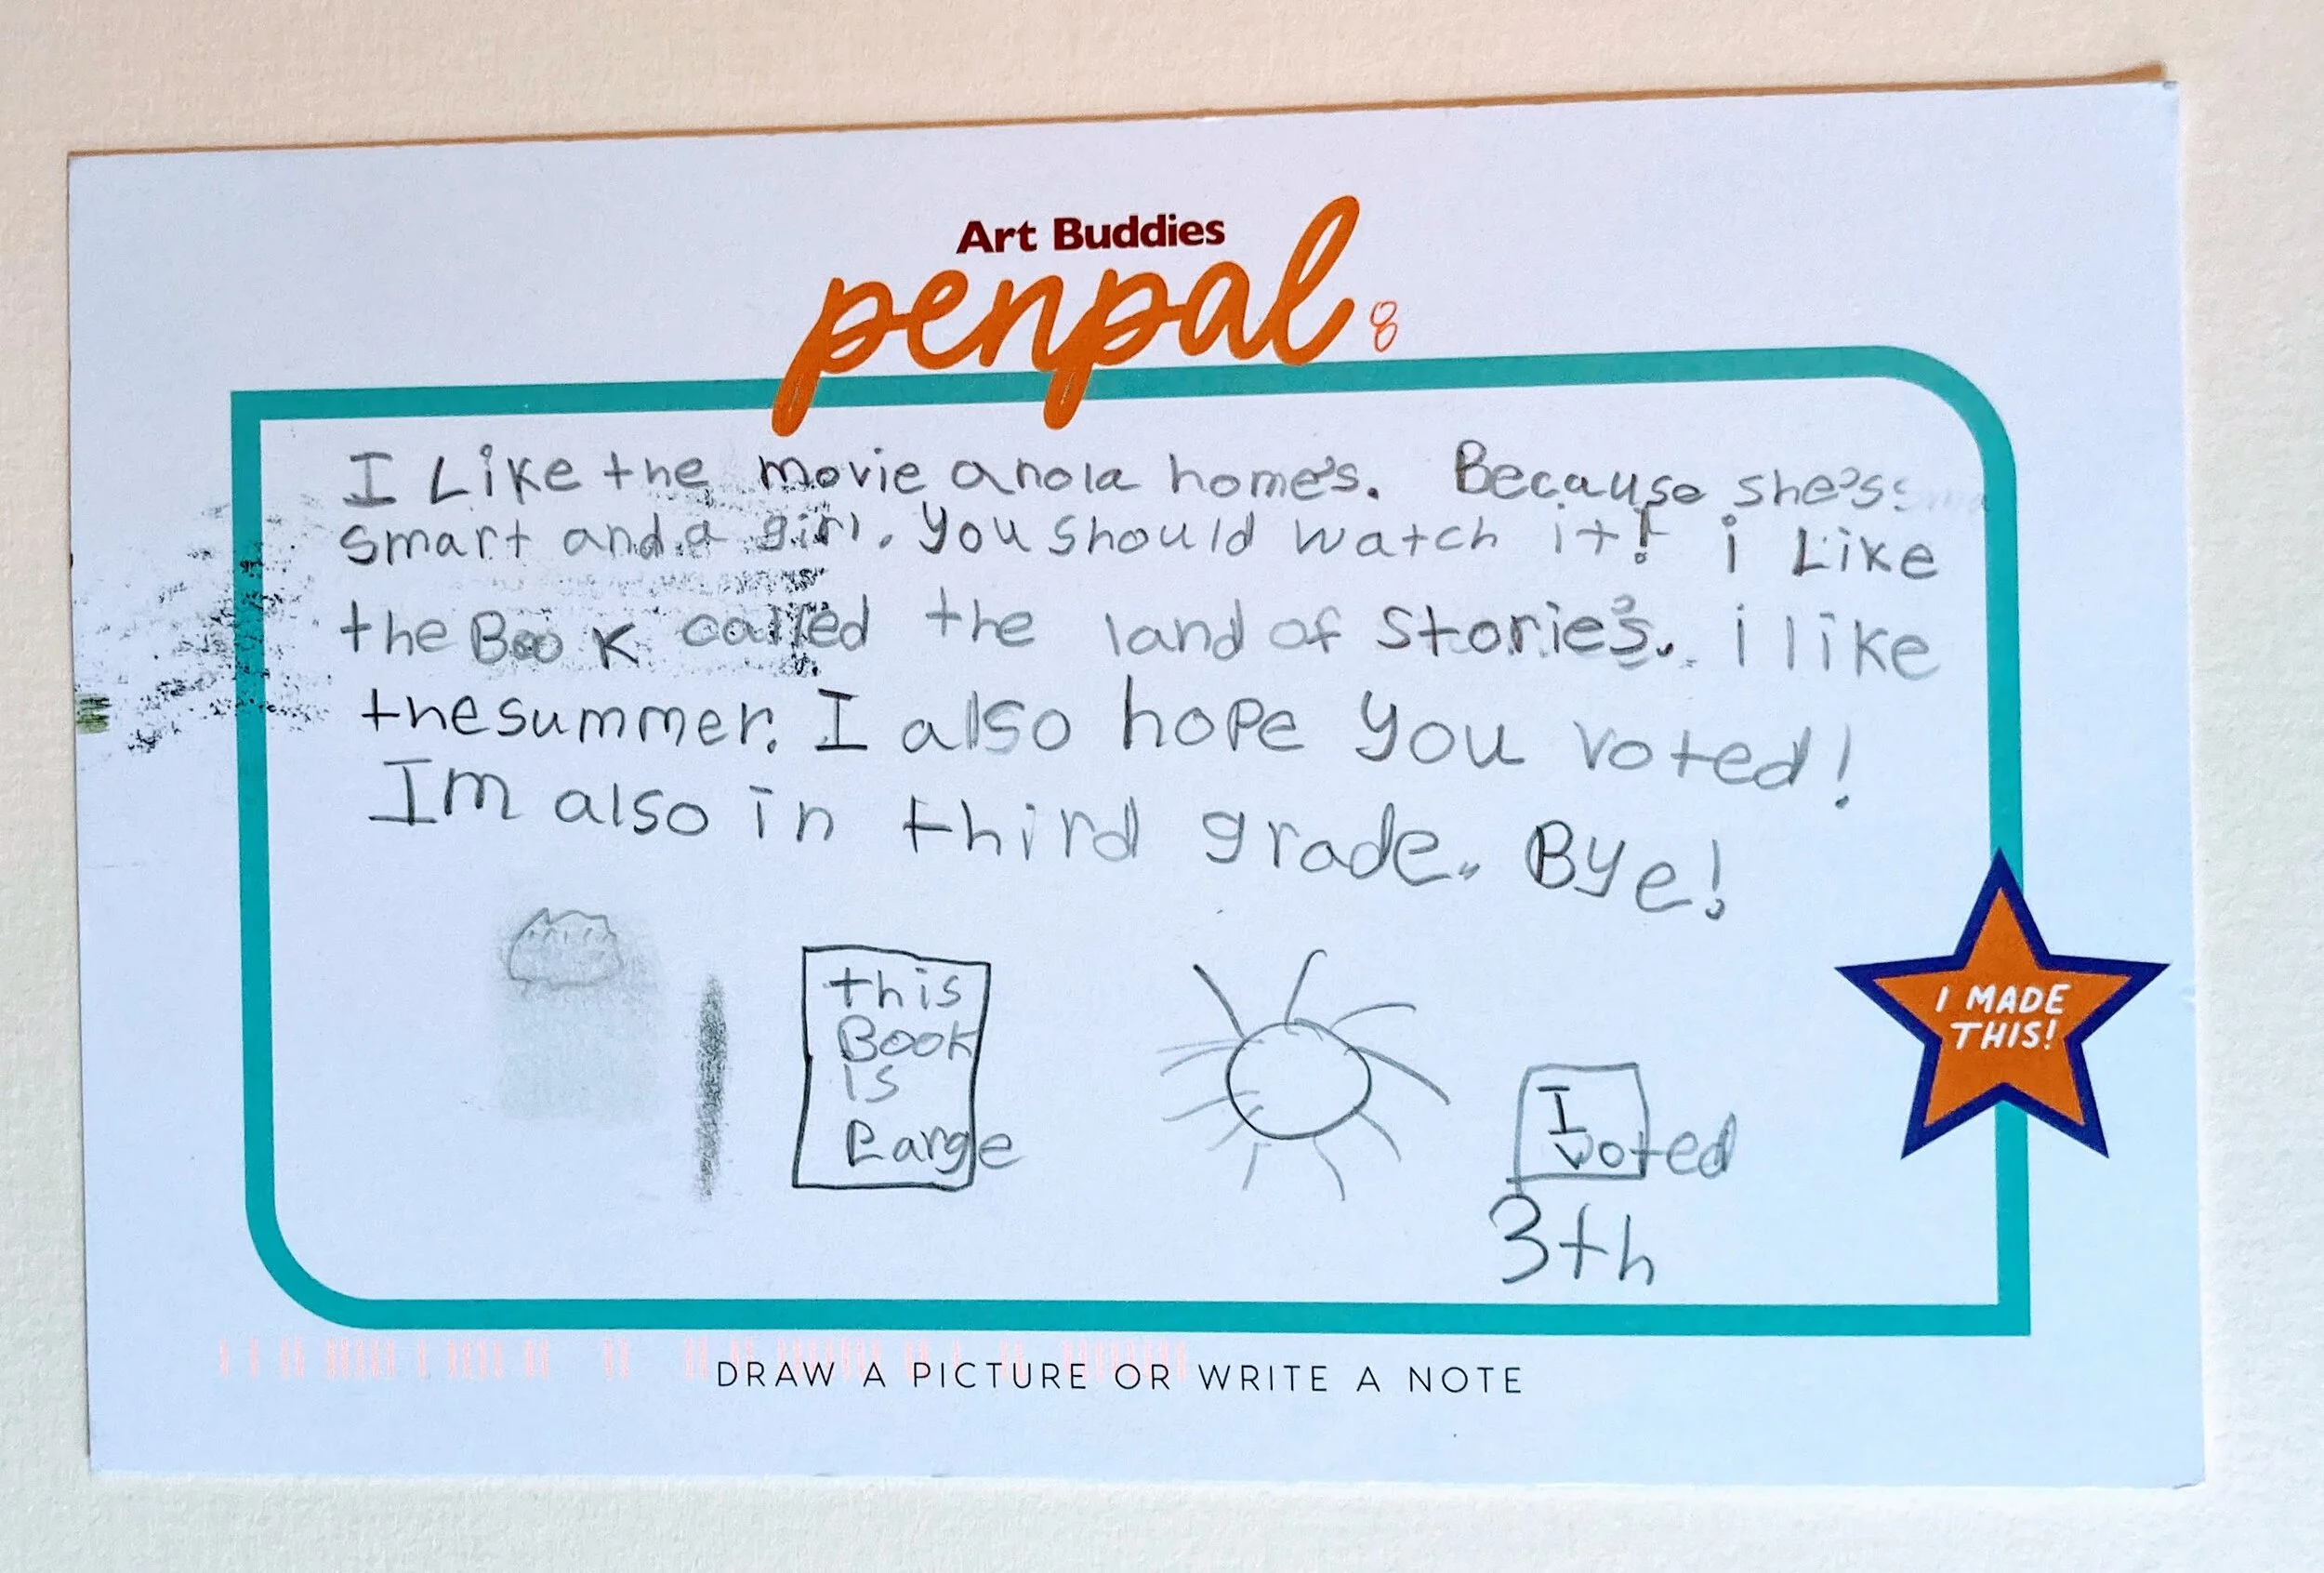 Art Buddies
penpal
8
I Like the movie anola home's. Because she's
smart and a girl. you should watch it! i Like
the Book called the land of Storie's. i like
the summer. I also hope you voted!
Im also in third grade. Bye!
this
Book
is
Large
I
voted
3th
I MADE
THIS!
DRAW A PICTURE OR WRITE A NOTE